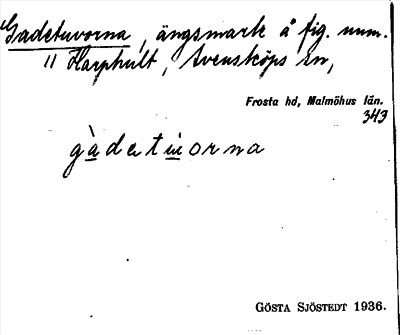 Gadetuvorna, ängsmark å fig. num.
11 Harphult, Svensköps sn,
Frosta hd, Malmöhus län.
343
gàdetùorna
GÖSTA SJÖSTEDT 1936.